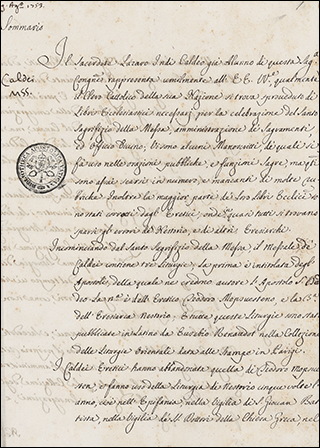 Sommario
Caldei
MSS.
Il Sacerdote Lazaro Indi Caldeo già Alunno di questa Sag.
Congñe, rappresenta umilmente all' E.E. VV. qualmente
il Clero Cattolico della sua Nazione si trova proveduto di
Libri Ecclesiastici necessarj per la celebrazione del Santo
Sagrifizio della Messa, amministrazione di Sagramenti,
ed Offizio Divino; Di alcuni Manoscritti, de quali si
fà uso nelle orazioni pubbliche, e funzioni Sagre, ma questi
sono assai scarsi in numero, e mancanti di molte Ru-
briche. Inoltre la maggior parte de Loro Libri Ecclici so-
no stati corrotti dagli Eretici, onde quasi tutti si trovano
sparsi gli errori de Nestorio, e di altri Eresiarche.
Incominciando dal Santo Sagrifizio della Messa. Il Messale de
Caldei contiene trè Liturgie; La prima è intitolata degli
Apostoli, della quale ne credono autore l'Apostolo S.
La 2a è dell' Eretico Teodoro Mopsuesteno, e la 3a
dell' Eresiarca Nestorio; E tutte queste Liturgie sono stati
pubblicate in Latino da Eusebio Renaudot nella Collezione
delle Liturgie Orientali data alle Stampe in Parigi.
I Caldei Eretici hanno abbandonata quella di Teodoro Mopsue-
steno, e fanno uso della Liturgia di Nestorio cinque volte l'
anno, cioè nell' Epifania, nella Vigilia di S. Giovan Bat-
tista, nella Vigilia di SS. Dottori della Chiesa Greca, nel